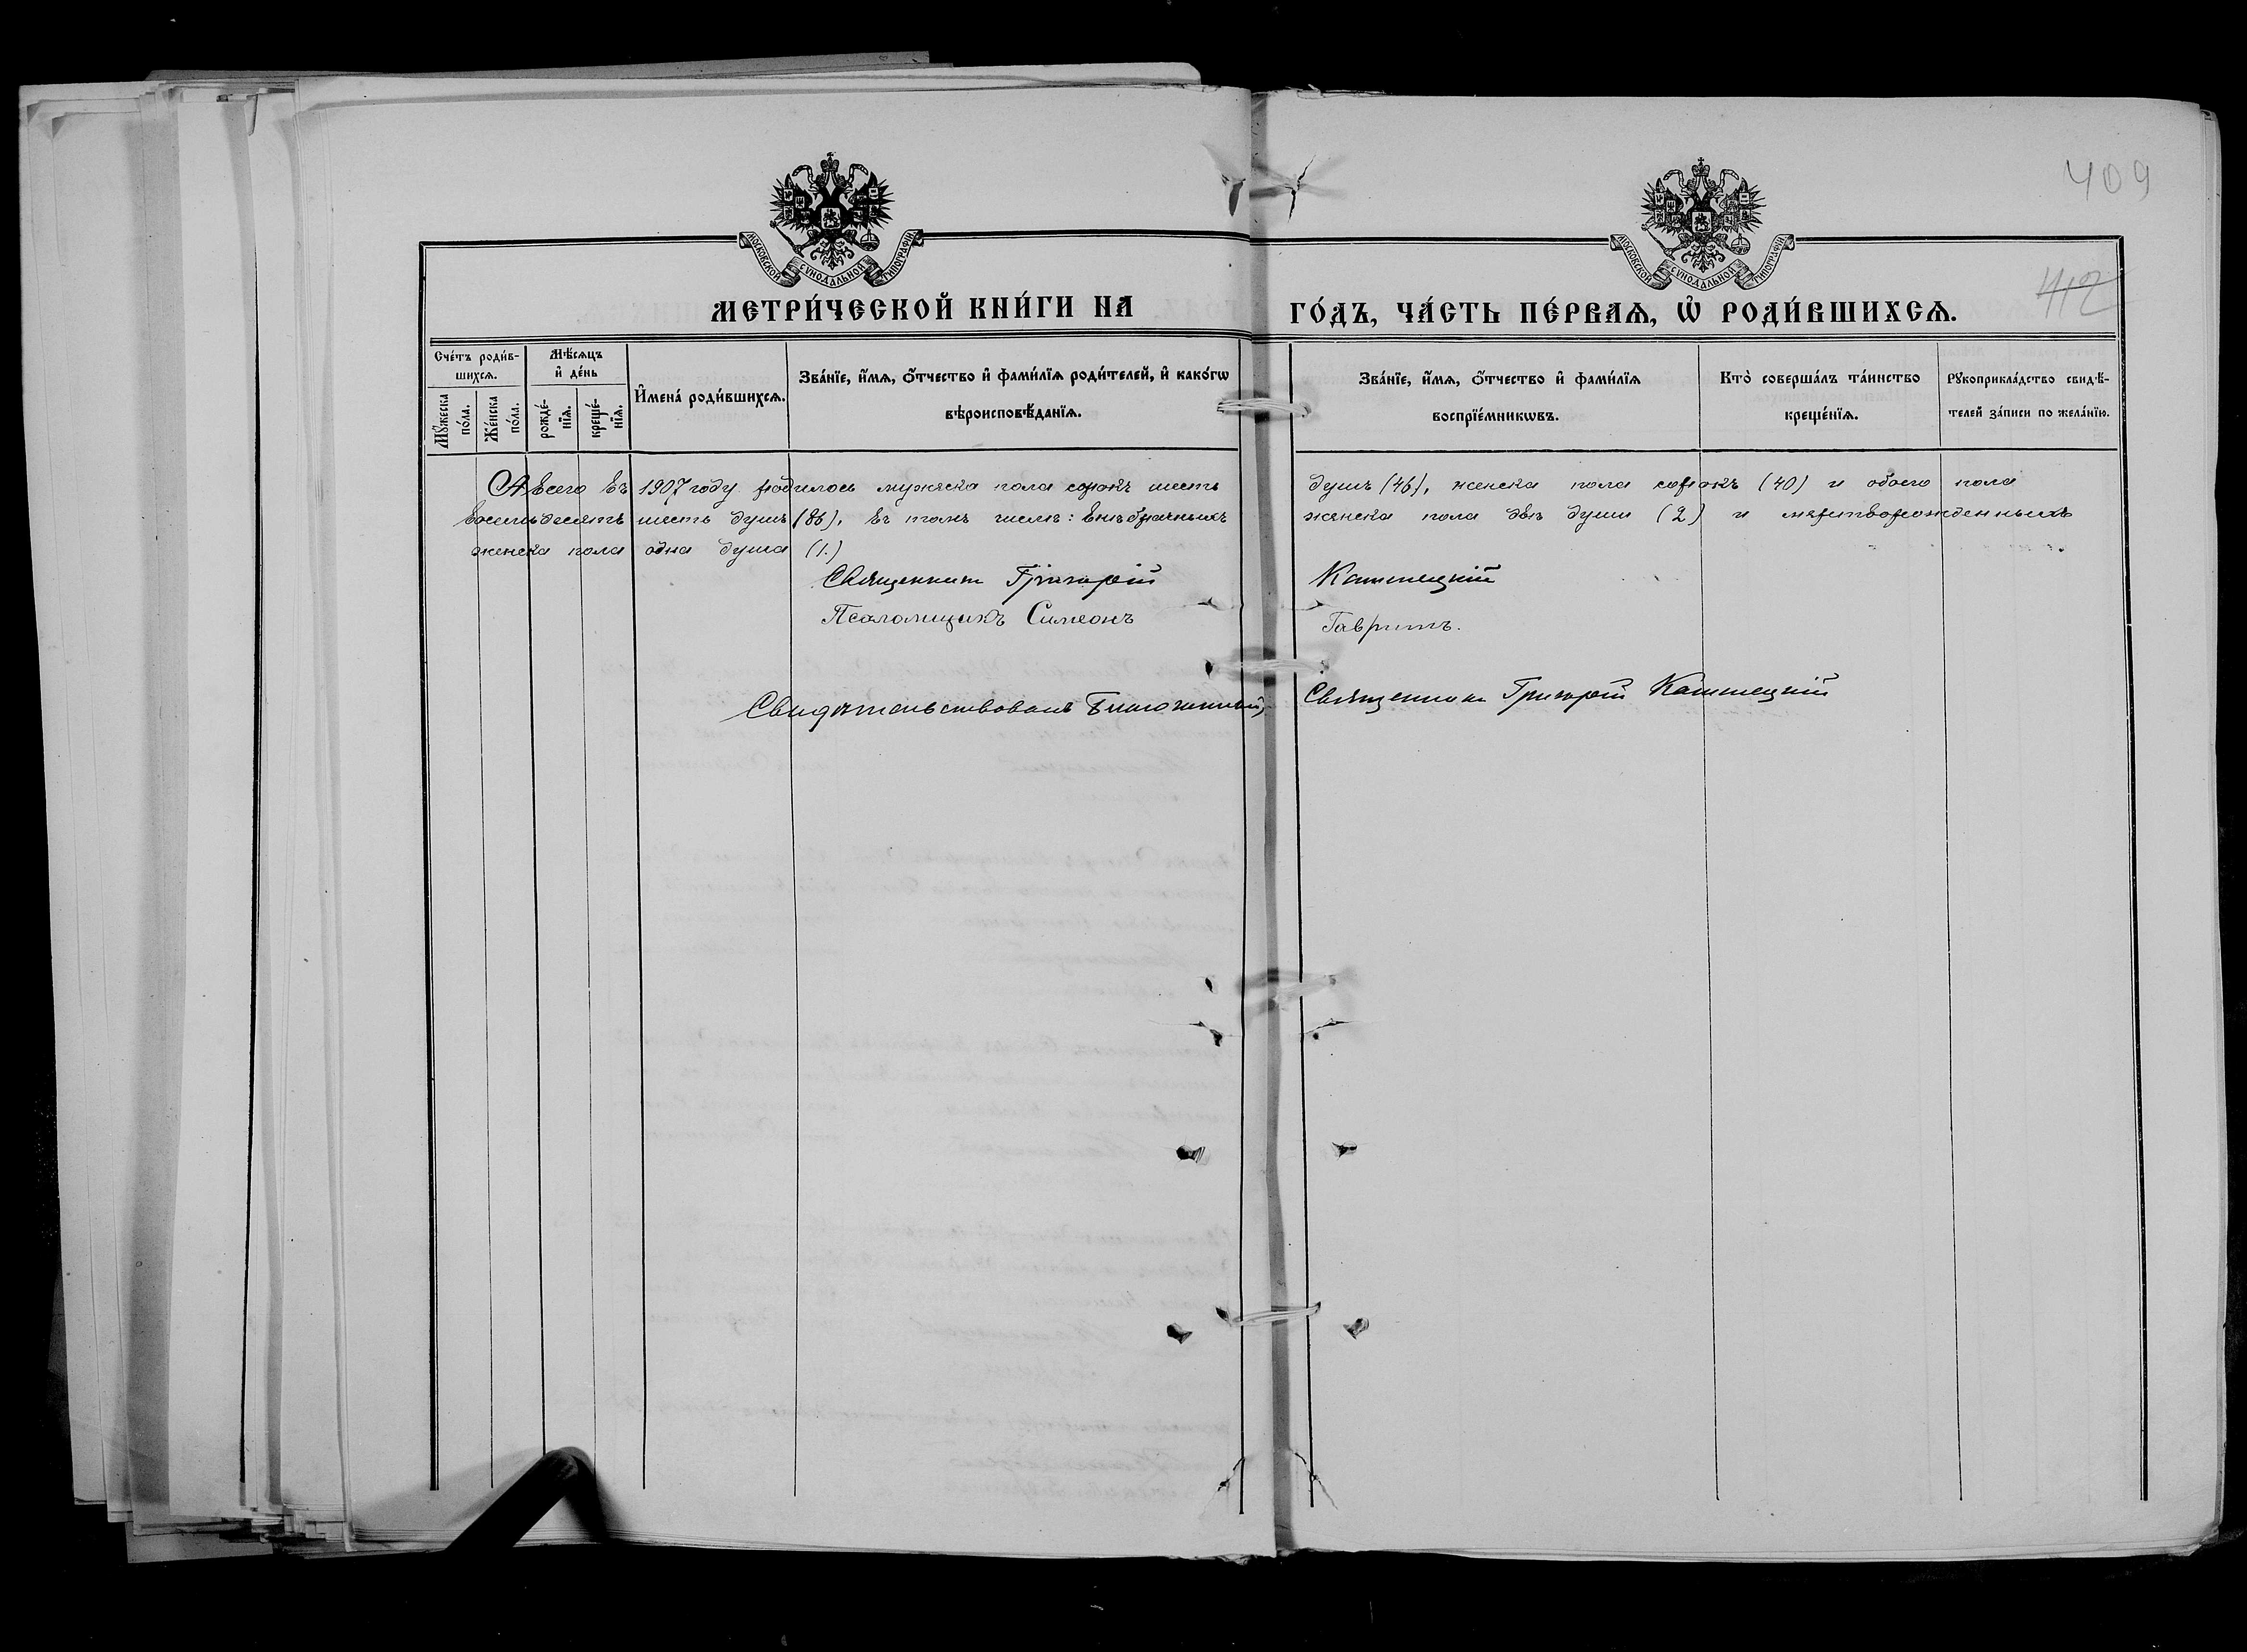 409
412
МОСКОВСКОЙ СѴНОДАЛЬНОЙ ТИПОГРАФІИ
МОСКОВСКОЙ СѴНОДАЛЬНОЙ ТИПОГРАФІИ
МЕТРИ́ЧЕСКОЙ КНИ́ГИ НА ГО́ДЪ, ЧА́СТЬ ПЕ́РВАѦ, Ѡ҆ РОДИ́ВШИХСѦ.
Сче́тъ роди́в-
шихсѧ.
Мꙋ́жеска
по́ла.
Же́нска
по́ла.
Мѣ́сѧцъ
и҆ де́нь
рожде́-
нїѧ.
креще́-
нїѧ.
И҆мена̀ роди́вшихсѧ.
Зва́нїе, и҆́мѧ, ѻ҆́тчество и҆ фами́лїѧ роди́телей, и҆ како́гѡ
вѣроисповѣ́данїѧ.
Зва́нїе, и҆́мѧ, ѻ҆́тчество и҆ фами́лїѧ
воспрїе́мникѡвъ.
Кто̀ соверша́лъ та́инство
креще́нїѧ.
Рꙋкоприкла́дство свидѣ́-
телей за́писи по жела́нїю.
А всего въ 1907 году родилось мужеска пола сорокъ шесть душъ (46), женска пола сорокъ (40) и обоего пола
восемьдесятъ шесть душъ (86), въ томъ числѣ: внѣбрачныхъ женска пола двѣ души (2) и мертворожденныхъ
женска пола одна душа (1.)
Священникъ Григорій Каминецкій
Псаломщикъ Симеонъ Гавришъ.
Свидѣтельствовалъ Благочинный, Священникъ Григорій Каминецкій